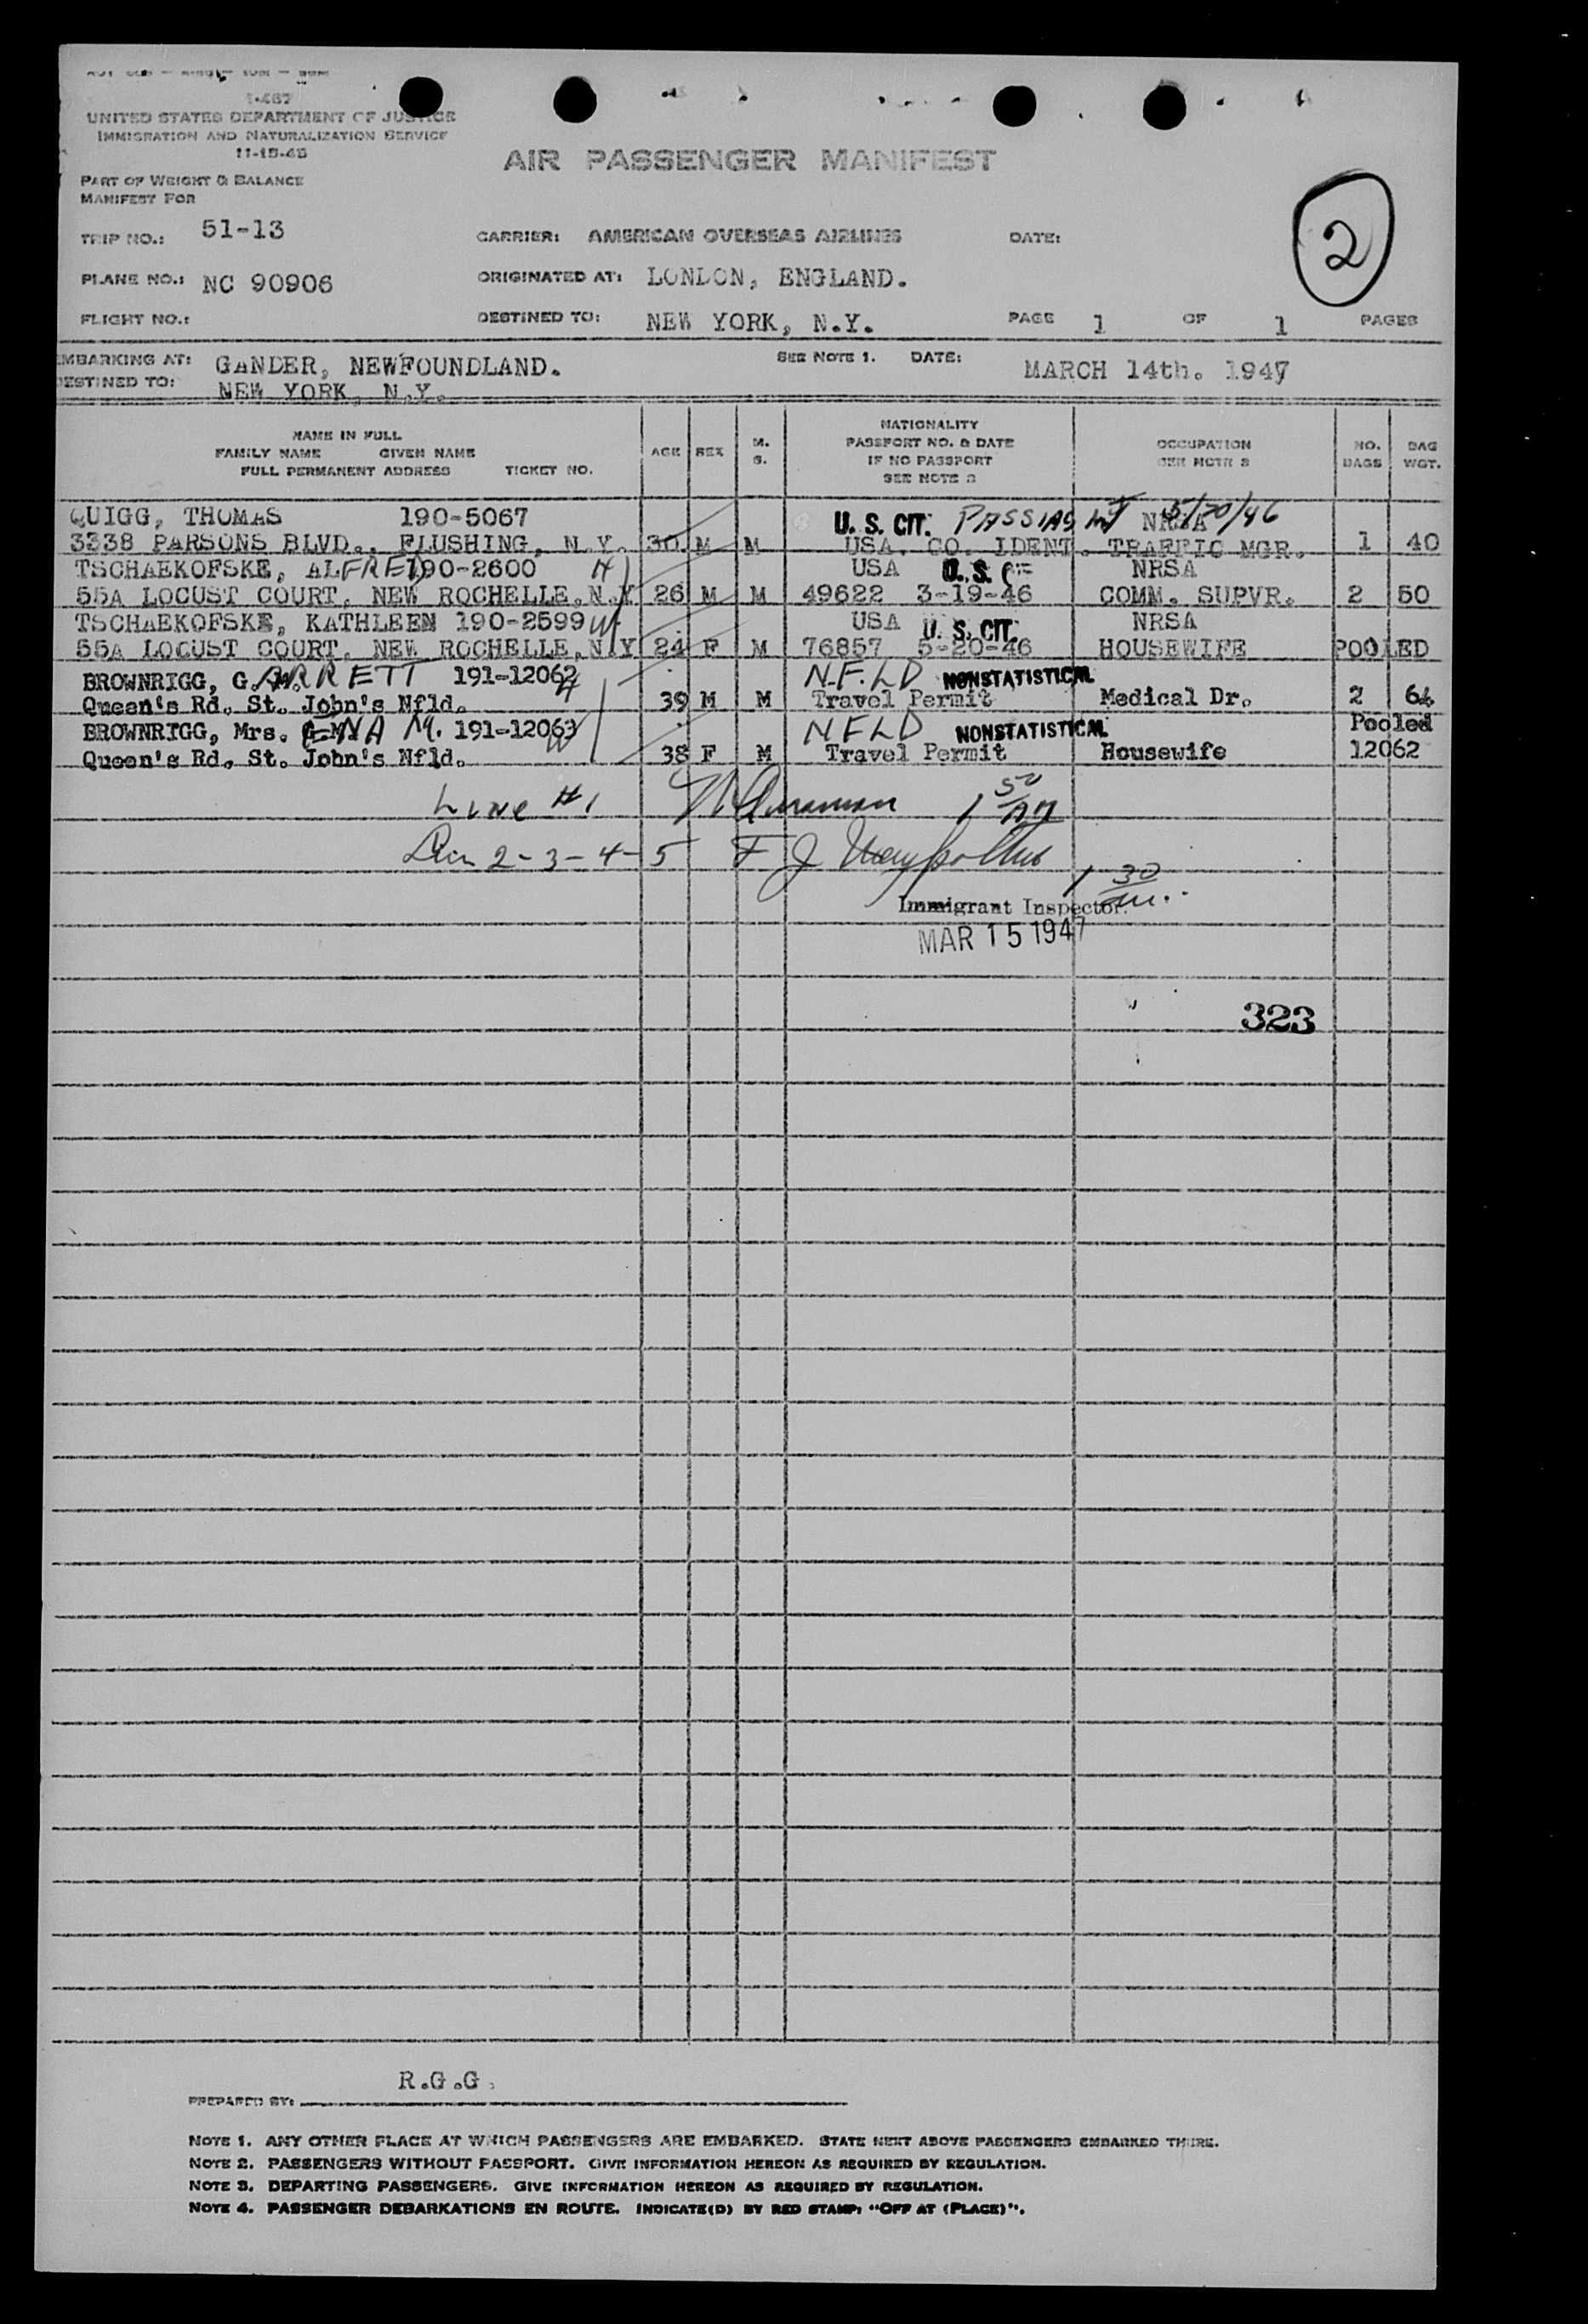 1-487
UNITED STATES DEPARTMENT OF JUSTICE
IMMIGRATION AND NATURALIZATION SERVICE
11-15-45
AIR PASSENGER MANIFEST
PART OF WEIGHT & BALANCE
MANIFEST FOR
2
TRIP NO.: 51-13 CARRIER: AMERICAN OVERSEAS AIRLINES DATE:
PLANE NO.: NC 90906 ORIGINATED AT: LONDON, ENGLAND.
FLIGHT NO.: DESTINED TO: NEW YORK, N.Y. PAGE 1 OF 1 PAGES
EMBARKING AT: GANDER, NEWFOUNDLAND. SEE NOTE 1. DATE: MARCH 14th. 1947
DESTINED TO: NEW YORK, N.Y.
NAME IN FULL
FAMILY NAME GIVEN NAME
FULL PERMANENT ADDRESS TICKET NO.
AGE SEX M. S.
NATIONALITY
PASSPORT NO. & DATE
IF NO PASSPORT
SEE NOTE 2
OCCUPATION
SEE NOTE 3
NO. BAGS
BAG WGT.
QUIGG, THOMAS 190-5067 U. S. CIT. NRSA 5/20/46
3338 PARSONS BLVD., FLUSHING, N.Y. 30 M M USA. CO. IDENT. TRAFFIC MGR. 1 40
TSCHAEKOFSKE, ALFRED 190-2600 H USA U. S. NRSA
55A LOCUST COURT, NEW ROCHELLE, N.Y 26 M M 49622 3-19-46 COMM. SUPVR. 2 50
TSCHAEKOFSKE, KATHLEEN 190-2599 W USA U. S. CIT. NRSA
55A LOCUST COURT, NEW ROCHELLE, N.Y 24 F M 76857 5-20-46 HOUSEWIFE POOLED
BROWNRIGG, G. ARRETT 191-12062 H N.F.LD NONSTATISTICAL
Queen's Rd, St. John's Nfld. 39 M M Travel Permit Medical Dr. 2 64
BROWNRIGG, Mrs. ENA M. 191-12063 W NFLD NONSTATISTICAL Pooled
Queen's Rd, St. John's Nfld. 38 F M Travel Permit Housewife 12062
Line #1 1 50
2-3-4-5 F J
1 30
Immigrant Inspector.
MAR 15 1947
323
R.G.G.
PREPARED BY:
NOTE 1. ANY OTHER PLACE AT WHICH PASSENGERS ARE EMBARKED. STATE NEXT ABOVE PASSENGERS EMBARKED THERE.
NOTE 2. PASSENGERS WITHOUT PASSPORT. GIVE INFORMATION HEREON AS REQUIRED BY REGULATION.
NOTE 3. DEPARTING PASSENGERS. GIVE INFORMATION HEREON AS REQUIRED BY REGULATION.
NOTE 4. PASSENGER DEBARKATIONS EN ROUTE. INDICATE(D) BY RED STAMP: "OFF AT (PLACE)".